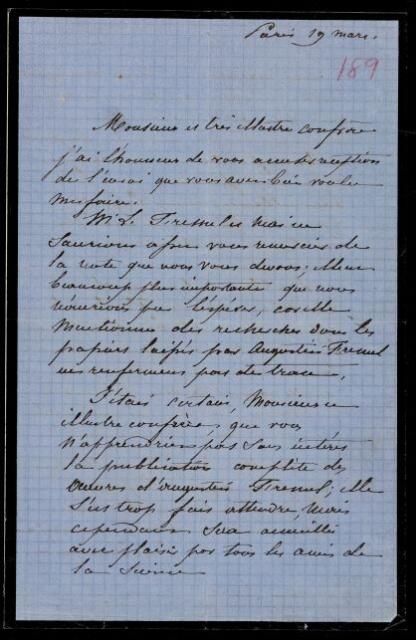 Paris 19 mars.
189
Monsieur et très illustre confrère
j'ai l'honneur de vous accuser réception
de l'envoi que vous avez bien voulu
me faire.
M. L. Fresnel et moi ne
saurions assez vous remercier de
la note que nous vous devons; elle est
beaucoup plus importante que nous
n'aurions pu l'espérer, car elle
mentionne des recherches dont les
papiers laissés par Augustin Fresnel
ne renferment pas de trace.
J'étais certain, Monsieur et
illustre confrère, que vous
n'apprendriez pas sans intérêt
la publication complète des
œuvres d'Augustin Fresnel; elle
s'est trop fait attendre, mais
cependant sera accueillie
avec plaisir par tous les amis de
la Science